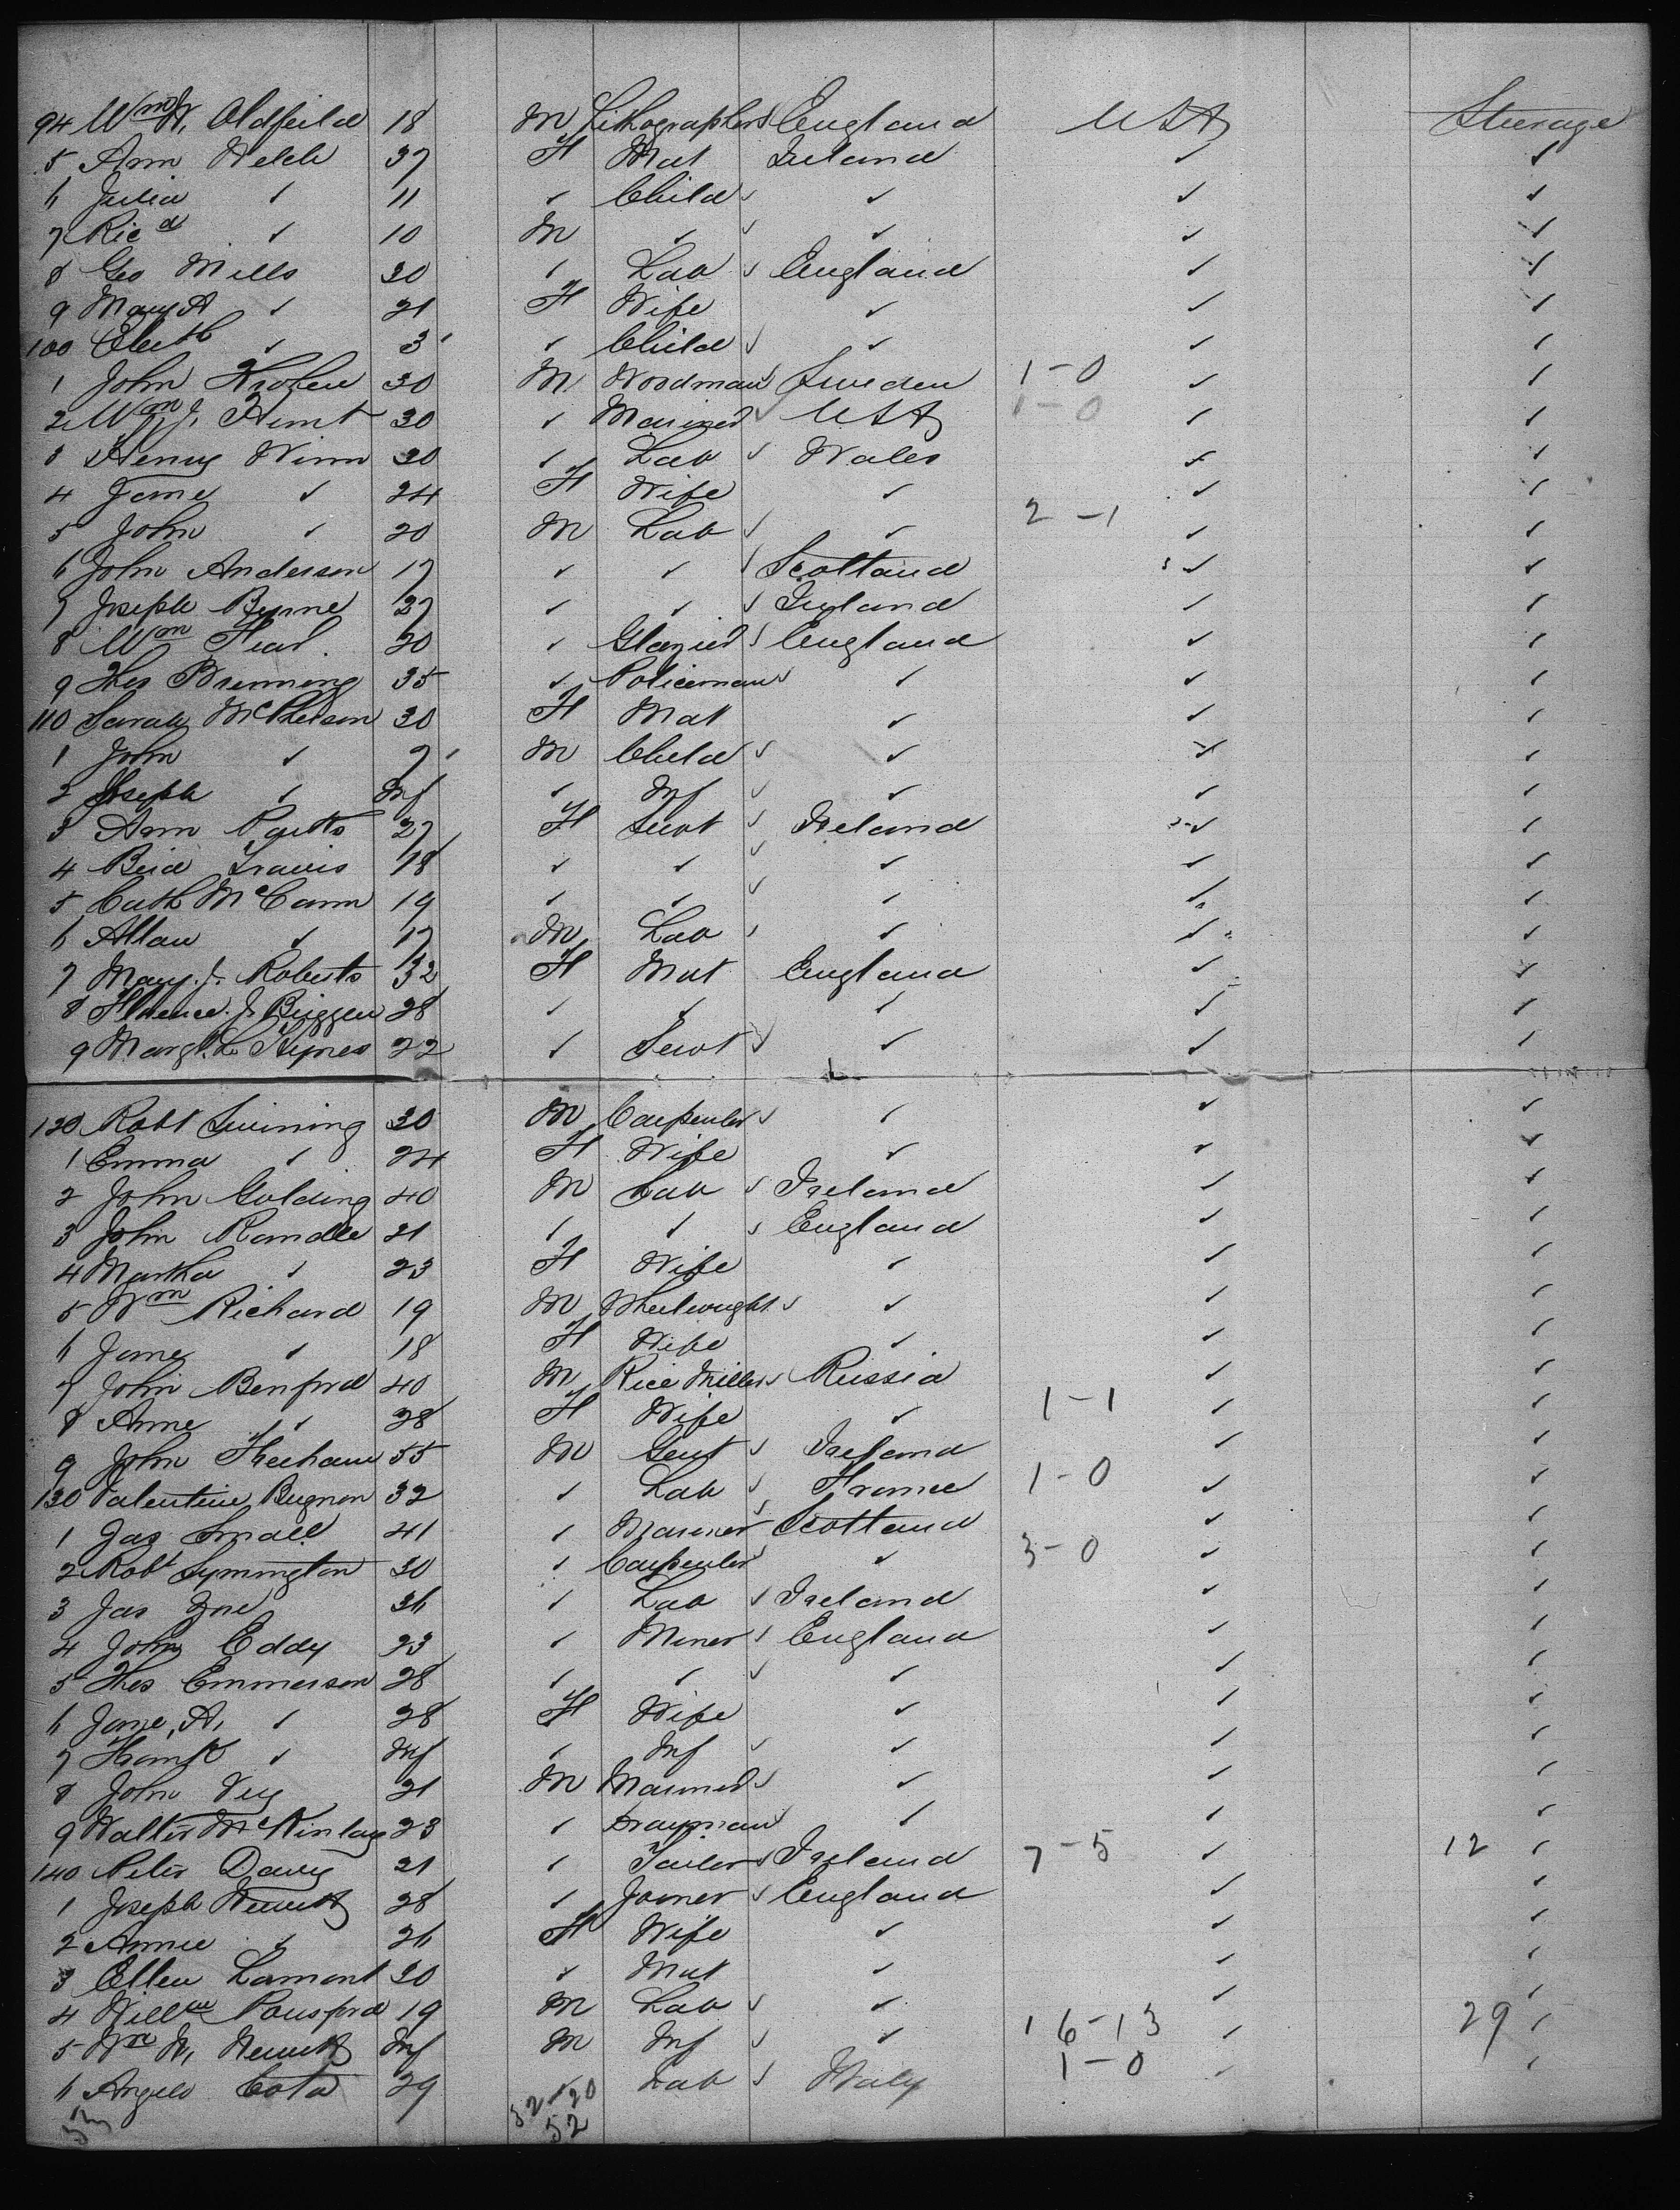 94 Wm H. Oldfeild 18 M Lithographer England USA Steerage
5 Ann Welch 37 F Mat Ireland ✓ ✓
6 Julia ✓ 11 ✓ Child ✓ ✓ ✓
7 Ricd ✓ 10 M ✓ ✓ ✓ ✓
8 Geo Mills 30 ✓ Lab England ✓ ✓
9 Mary A ✓ 21 F Wife ✓ ✓ ✓
100 ✓ 3 ✓ Child ✓ ✓ ✓
1 John 30 M Woodman Sweden 1-0 ✓ ✓
2 Wm J. Hunt 30 ✓ Mariner USA 1-0 ✓ ✓
3 Henry Winn 30 ✓ Lab Wales ✓ ✓
4 Jane ✓ 24 F Wife ✓ ✓ ✓
5 John ✓ 20 M Lab ✓ 2-1 ✓ ✓
6 John Anderson 17 ✓ ✓ Scotland ✓ ✓
7 Joseph Byrne 37 ✓ ✓ Ireland ✓ ✓
8 Wm 20 ✓ Glazier England ✓ ✓
9 Thos 35 ✓ Policeman ✓ ✓ ✓
110 Sarah McPherson 30 F Mat ✓ ✓ ✓
1 John ✓ 7 M Child ✓ ✓ ✓
2 Joseph ✓ Inf ✓ Inf ✓ ✓ ✓
3 Ann 27 F Servt Ireland ✓ ✓
4 Travis 18 ✓ ✓ ✓ ✓ ✓
5 Cath McCann 19 ✓ ✓ ✓ ✓ ✓
6 Allan ✓ 17 M Lab ✓ ✓ ✓
7 Mary J. Roberts 32 F Mat England ✓ ✓
8 Florence J. 28 ✓ ✓ ✓ ✓ ✓
9 Margt. L. Hynes 22 ✓ Servt ✓ ✓ ✓
120 Robt 30 M Carpenter ✓ ✓ ✓
1 Emma ✓ 24 F Wife ✓ ✓ ✓
2 John Golding 40 M Lab Ireland ✓ ✓
3 John Randle 21 ✓ ✓ England ✓ ✓
4 Martha ✓ 23 F Wife ✓ ✓ ✓
5 Wm Richard 19 M Wheelwright ✓ ✓ ✓
6 Jane ✓ 18 F Wife ✓ ✓ ✓
7 John Benford 40 M Rice Miller Russia ✓ ✓
8 Anne ✓ 28 F Wife ✓ 1-1 ✓ ✓
9 John 55 M Gent Ireland ✓ ✓
130 Valentine Bugnon 32 ✓ Lab France 1-0 ✓ ✓
1 Jas Small 41 ✓ Mariner Scotland ✓ ✓
2 Robt Symington 30 ✓ Carpenter ✓ 3-0 ✓ ✓
3 Jas 36 ✓ Lab Ireland ✓ ✓
4 John Eddy 23 ✓ Miner England ✓ ✓
5 Thos Emmerson 28 ✓ ✓ ✓ ✓ ✓
6 Jane, A, ✓ 28 F Wife ✓ ✓ ✓
7 ✓ Inf ✓ Inf ✓ ✓ ✓
8 John 21 M Mariner ✓ ✓ ✓
9 Walter McKinlay 23 ✓ Drayman ✓ ✓ ✓
140 Peter Davy 21 ✓ Tailor Ireland 7-5 ✓ 12 ✓
1 Joseph 28 ✓ Joiner England ✓ ✓
2 Annie ✓ 26 F Wife ✓ ✓ ✓
3 Ellen Lamont 30 ✓ Mat ✓ ✓ ✓
4 Willm Ponsford 19 M Lab ✓ ✓ ✓
5 Wm H, Inf M Inf ✓ 16-13 ✓ 29 ✓
6 Angelo Cota 29 ✓ Lab Italy 1-0 ✓ ✓
53 32-20
52